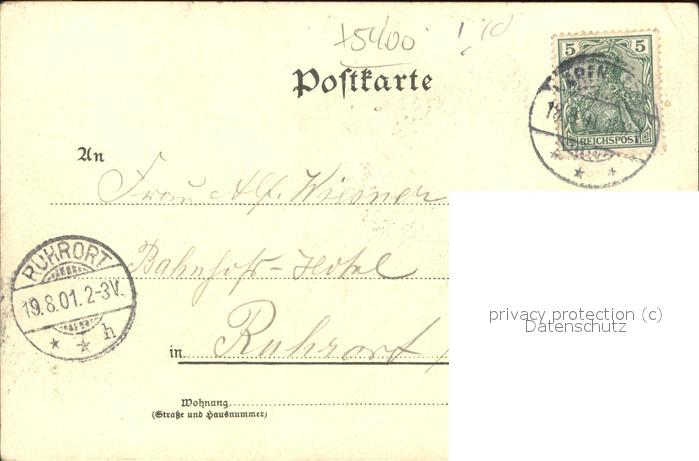 +5400
Postkarte
5 5
REICHSPOST
An
Frau Alf. Wiesner
Bahnhofs-Hotel
in Ruhrort
RUHRORT
19.8.01.2-3V.
* * h
Wohnung
(Straße und Hausnummer)
privacy protection (c)
Datenschutz